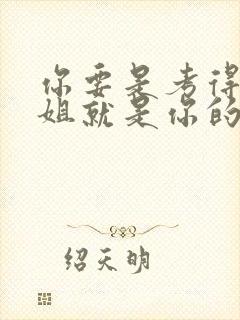 你要是考得
姐就是你的
绍天明